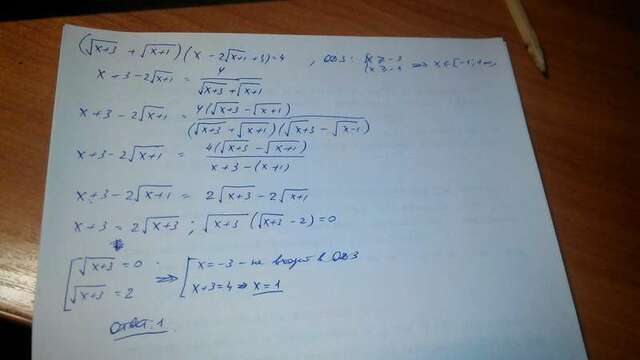 (√x+3 + √x+1)(x - 2√x+1 + 3) = 4 , ОДЗ: {x ≥ -3 {x ≥ -1 ⇒ x ∈ [-1; +∞
x + 3 - 2√x+1 = 4/(√x+3 + √x+1)
x + 3 - 2√x+1 = 4(√x+3 - √x+1)/((√x+3 + √x+1)(√x+3 - √x-1))
x + 3 - 2√x+1 = 4(√x+3 - √x+1)/(x+3-(x+1))
x + 3 - 2√x+1 = 2√x+3 - 2√x+1
x + 3 = 2√x+3 ; √x+3 (√x+3 - 2) = 0
[√x+3 = 0 ⇒ [x = -3 - не входит в ОДЗ
[√x+3 = 2 [x+3 = 4 ⇒ x = 1
Ответ: 1.